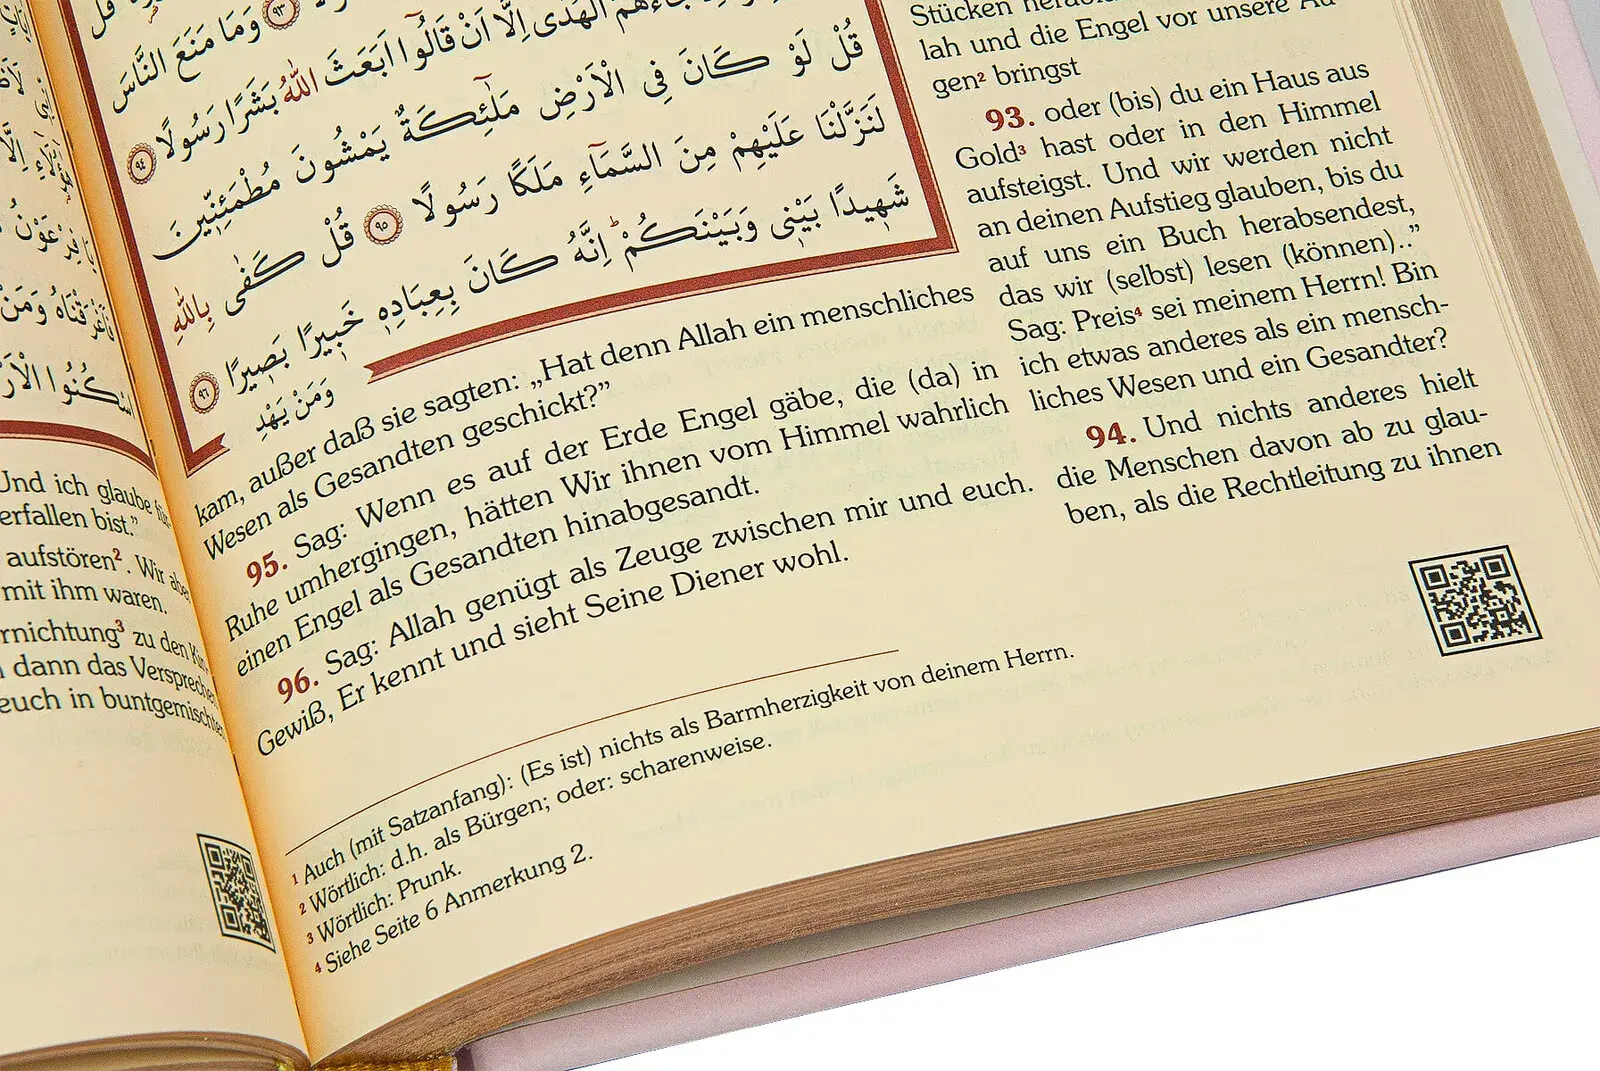 وَمَا مَنَعَ النَّاسَ
جَٓاءَهُمُ الْهُدٰٓى اِلَّٓا اَنْ قَالُٓوا اَبَعَثَ اللّٰهُ بَشَرًا رَسُولًا ٩٤
قُلْ لَوْ كَانَ فِي الْاَرْضِ مَلٰٓئِكَةٌ يَمْشُونَ مُطْمَئِنّ۪ينَ
لَنَزَّلْنَا عَلَيْهِمْ مِنَ السَّمَٓاءِ مَلَكًا رَسُولًا ٩٥ قُلْ كَفٰى بِاللّٰهِ
شَه۪يدًا بَيْن۪ي وَبَيْنَكُمْ اِنَّهُ كَانَ بِعِبَادِه۪ خَب۪يرًا بَص۪يرًا ٩٦
وَمَنْ يَهْدِ
Stücken
lah und die Engel vor unsere Au-
gen² bringst
93. oder (bis) du ein Haus aus
Gold³ hast oder in den Himmel
aufsteigst. Und wir werden nicht
an deinen Aufstieg glauben, bis du
auf uns ein Buch herabsendest,
das wir (selbst) lesen (können)..”
Sag: Preis⁴ sei meinem Herrn! Bin
ich etwas anderes als ein mensch-
liches Wesen und ein Gesandter?
94. Und nichts anderes hielt
die Menschen davon ab zu glau-
ben, als die Rechtleitung zu ihnen
kam, außer daß sie sagten: „Hat denn Allah ein menschliches
Wesen als Gesandten geschickt?”
95. Sag: Wenn es auf der Erde Engel gäbe, die (da) in
Ruhe umhergingen, hätten Wir ihnen vom Himmel wahrlich
einen Engel als Gesandten hinabgesandt.
96. Sag: Allah genügt als Zeuge zwischen mir und euch.
Gewiß, Er kennt und sieht Seine Diener wohl.
1 Auch (mit Satzanfang): (Es ist) nichts als Barmherzigkeit von deinem Herrn.
2 Wörtlich: d.h. als Bürgen; oder: scharenweise.
3 Wörtlich: Prunk.
4 Siehe Seite 6 Anmerkung 2.
Und ich glaube
erfallen bist.”
aufstören². Wir aber
mit ihm waren.
rnichtung³ zu den
dann das Versprechen
euch in buntgemischten